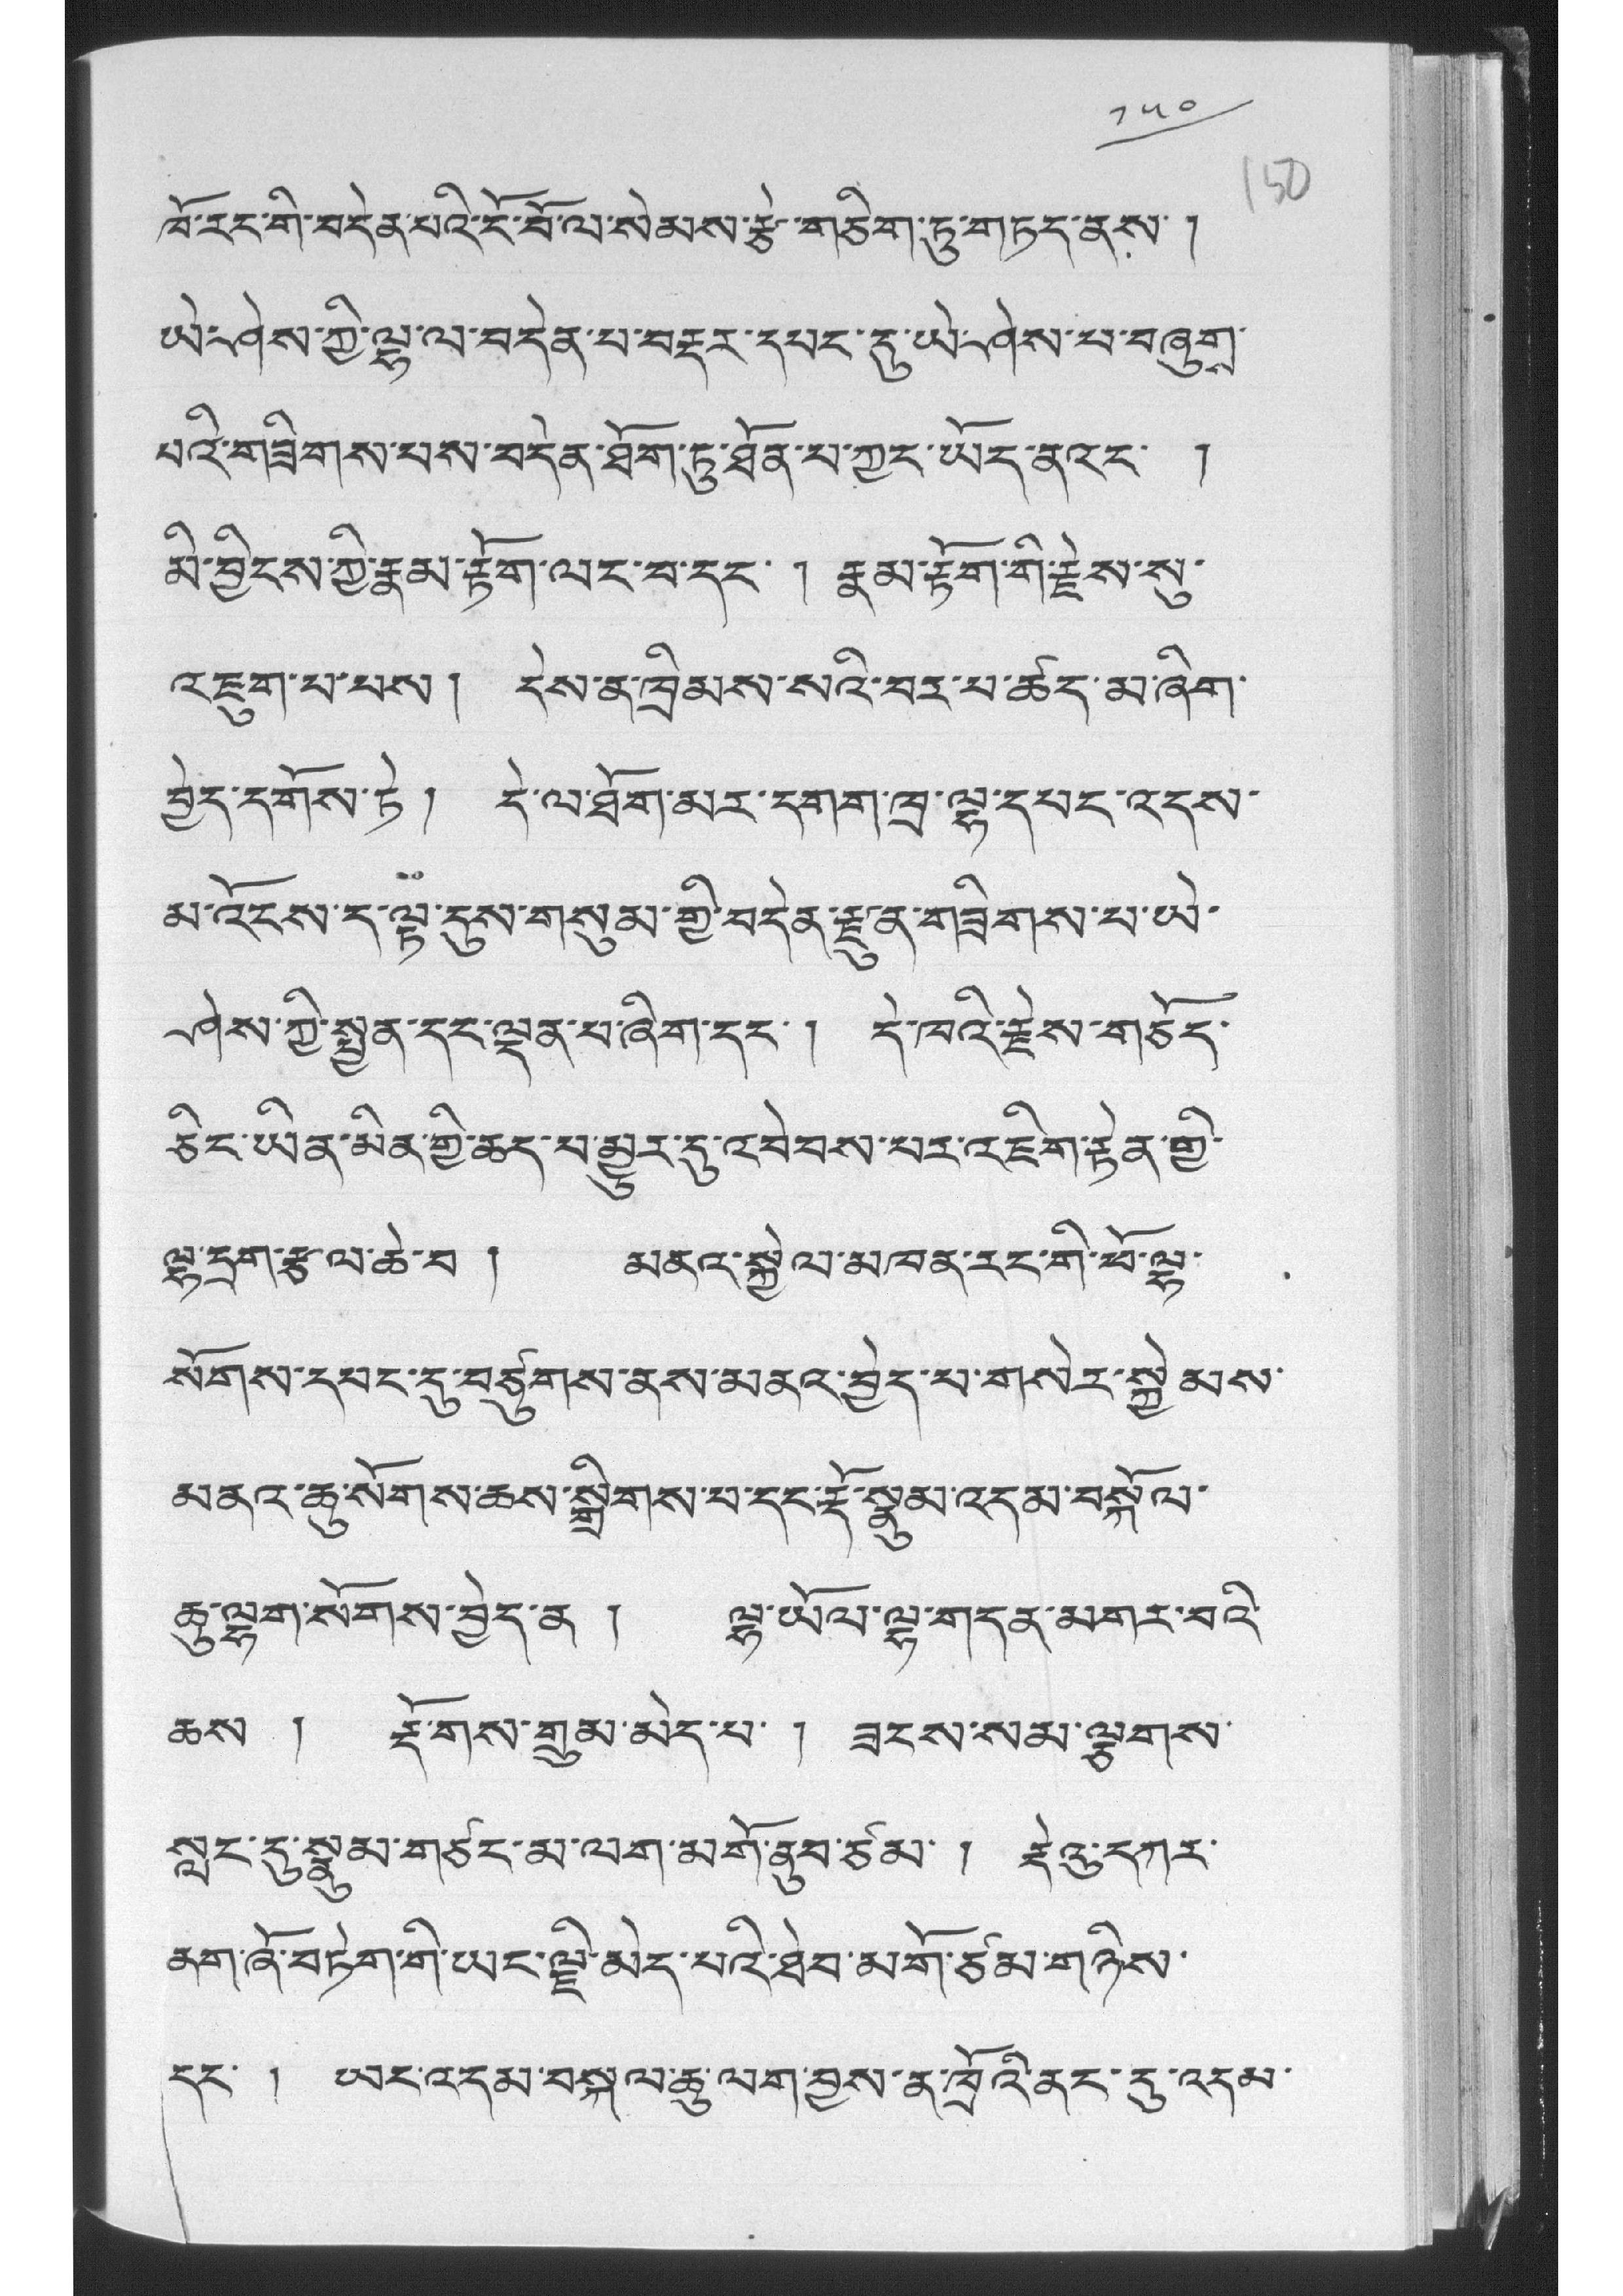 ༡༥༠
150
ཁོ་རང་གི་བདེན་པའི་ངོ་བོ་ལ་སེམས་རྩེ་གཅིག་ཏུ་གཏད་ནས །
ཡེ་ཤེས་ཀྱི་ལྷ་ལ་བདེན་པ་བརྡར་དཔང་དུ་ཡེ་ཤེས་པ་བཞུགྶ་
པའི་གཟིགས་པས་བདེན་ཐོག་ཏུ་ཐོན་པ་ཀྱང་ཡོད་ནའང་ །
མི་བྱིངས་ཀྱི་རྣམ་རྟོག་ལང་བ་དང་ ། རྣམ་རྟོག་གི་རྗེས་སུ་
འཇུག་པ་པས། དེས་ན་ཁྲིམས་སའི་བར་པ་ཚད་མ་ཞིག་
བྱེད་དགོས་ཏེ། དེ་ལ་ཐོག་མར་དགག་ཁྲ་ལྷ་དཔང་འདས་
མ་འོངས་ད་ལྟ་དུས་གསུམ་གྱི་བདེན་རྫུན་གཟིགས་པ་ཡེ་
ཤེས་ཀྱི་སྤྱན་དང་ལྡན་པ་ཞིག་དང་ ། དེ་ཁའི་རྗེས་གཅོད་
ཅིང་ཡིན་མིན་གྱི་ཆད་པ་མྱུར་དུ་འབེབས་པར་འཇིག་རྟེན་གྱི་
ལྷ་དྲག་རྩལ་ཆེ་བ ། མནའ་སྐྱེལ་མཁན་རང་གི་ཕོ་ལྷ་
སོགས་དཔང་དུ་བཙུགས་ནས་མནའ་བྱེད་པ་གསེར་སྐྱེམས་
མནའ་ཆུ་སོགས་ཆས་སྒྲིགས་པ་དང་རྡོ་སྣུམ་འདམ་བསྐོལ་
ཆུ་ལྷག་སོགས་བྱེད་ན ། ལྷ་ཡོལ་ལྷ་གདན་མགར་བའི་
ཆས ། རྡོ་གས་གྲུམ་མེད་པ་ ། ཟངས་སམ་ལྕགས་
སླང་དུ་སྣུམ་གཙང་མ་ལག་མགོ་ནུབ་ཙམ་ ། རྡེའུ་དཀར་
ནག་ཞོ་བཏེག་གི་ཡང་ལྗི་མེད་པའི་ཐེབ་མགོ་ཙམ་གཉིས་
དང་ ། ཡང་འདམ་བསྐལ་ཆུ་ལག་བྱས་ན་ཁྲོའི་ནང་དུ་འདམ་